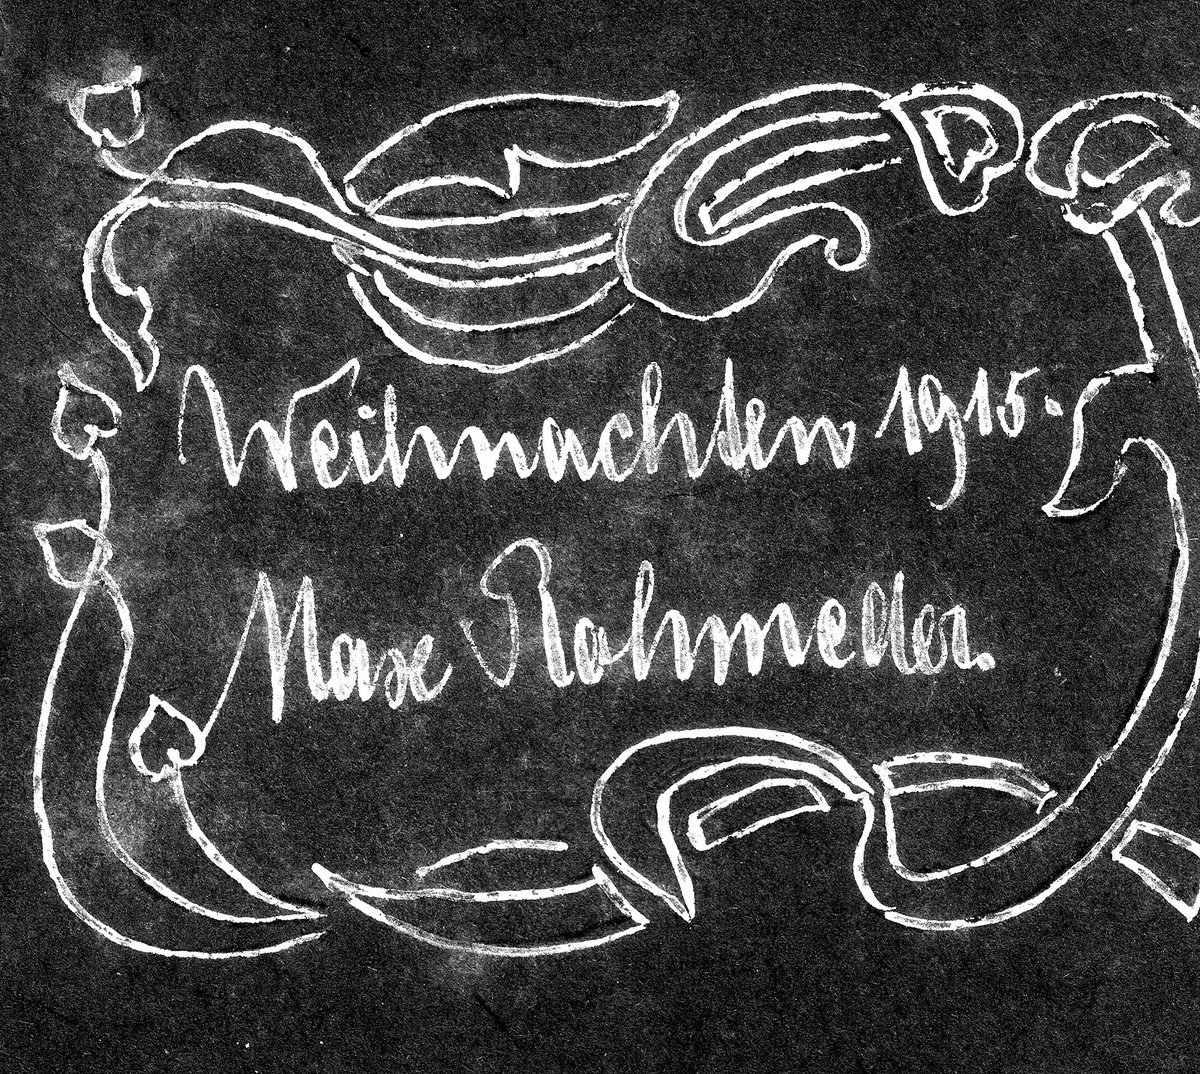 Weihnachten 1915.
Maxe Rahmeder.